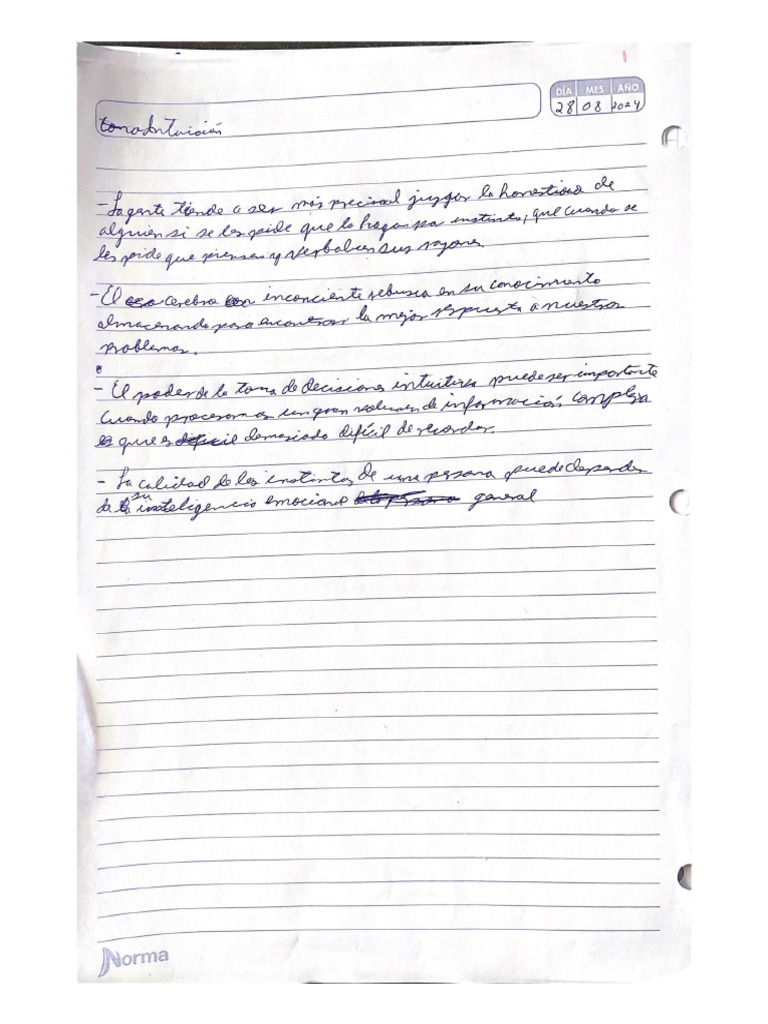 DÍA MES AÑO
28 08 2024
Intuición
- La gente tiende a ser más precisa al juzgar la honestidad de
alguien si se les pide que lo hagan por instinto, que cuando se
les pide que piensen y verbalicen sus razones.
- El cerebro inconciente rebusca en su conocimiento
almacenando para encontrar la mejor respuesta a nuestros
problemas.
- El poder de la toma de decisiones intuitivas puede ser importante
cuando procesamos un gran volumen de información compleja
que es demasiado difícil de recordar.
- La calidad de los instintos de una persona puede depender
de su inteligencia emocional general
Norma